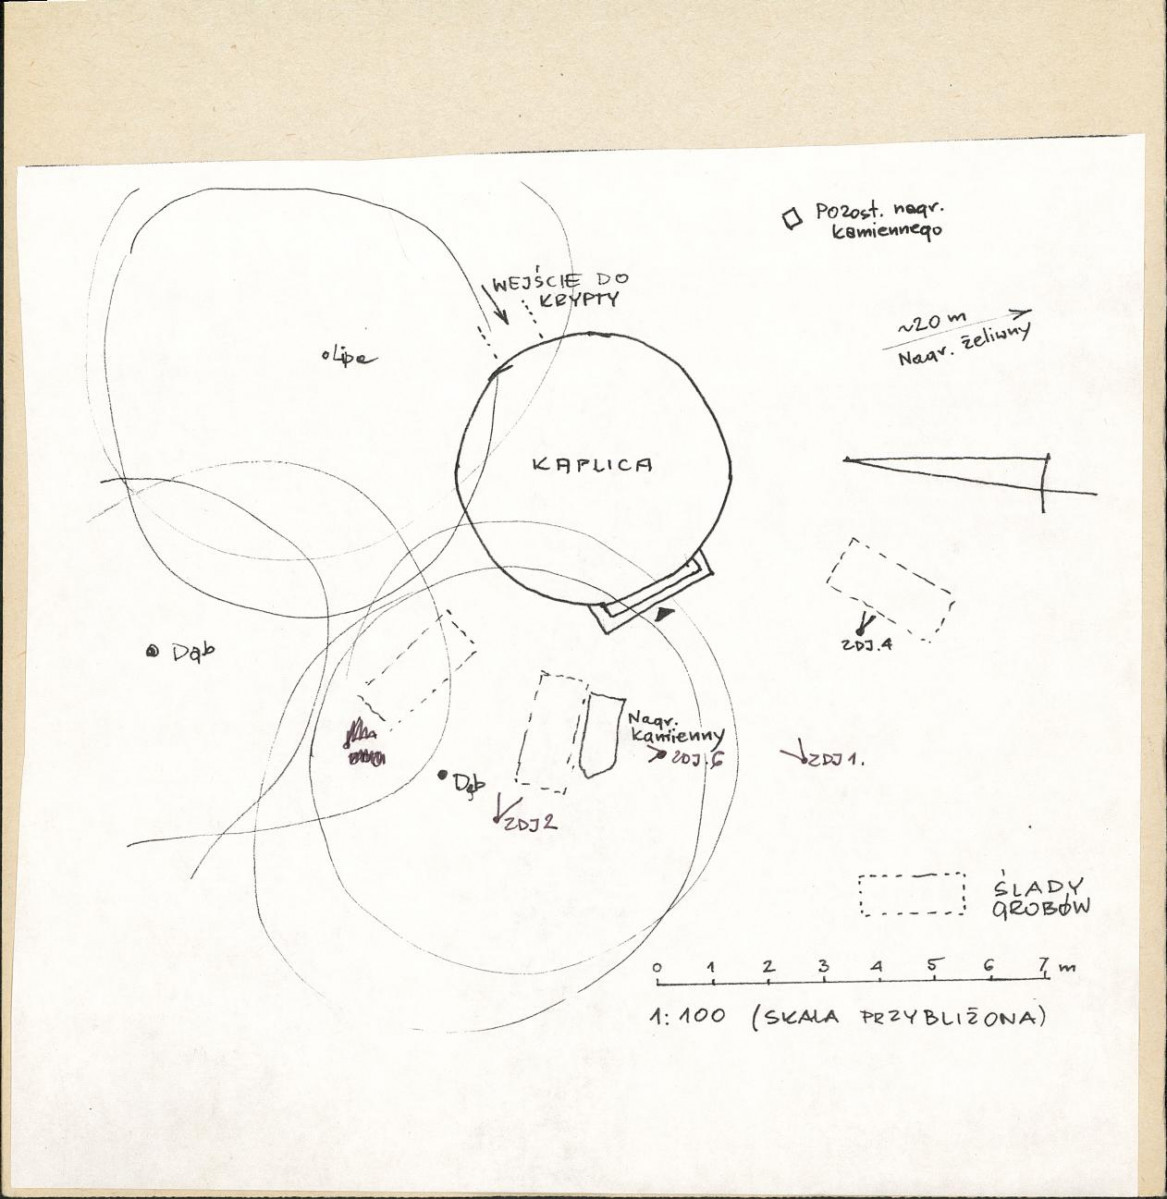 Pozost. nagr.
kamiennego
WEJŚCIE DO
KRYPTY
~20 m
Nagr. żeliwny
Lipa
KAPLICA
Dąb
ZDJ.4
Nagr.
kamienny
ZDJ.
ZDJ 1.
Dąb
ZDJ 2
ŚLADY
GROBÓW
0 1 2 3 4 5 6 7 m
1:100 (SKALA PRZYBLIŻONA)